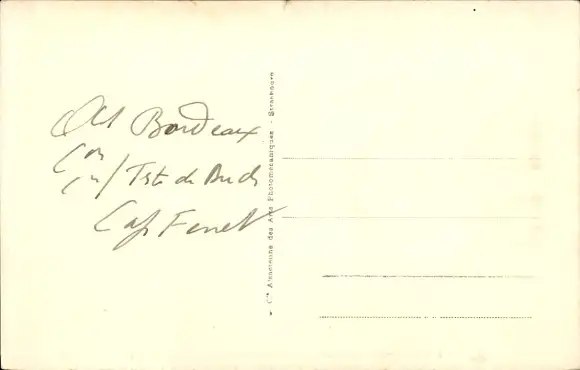 Bordeaux
Teste de Buch
Cap Ferret
Cie Alsacienne des Arts Photomécaniques - Strasbourg